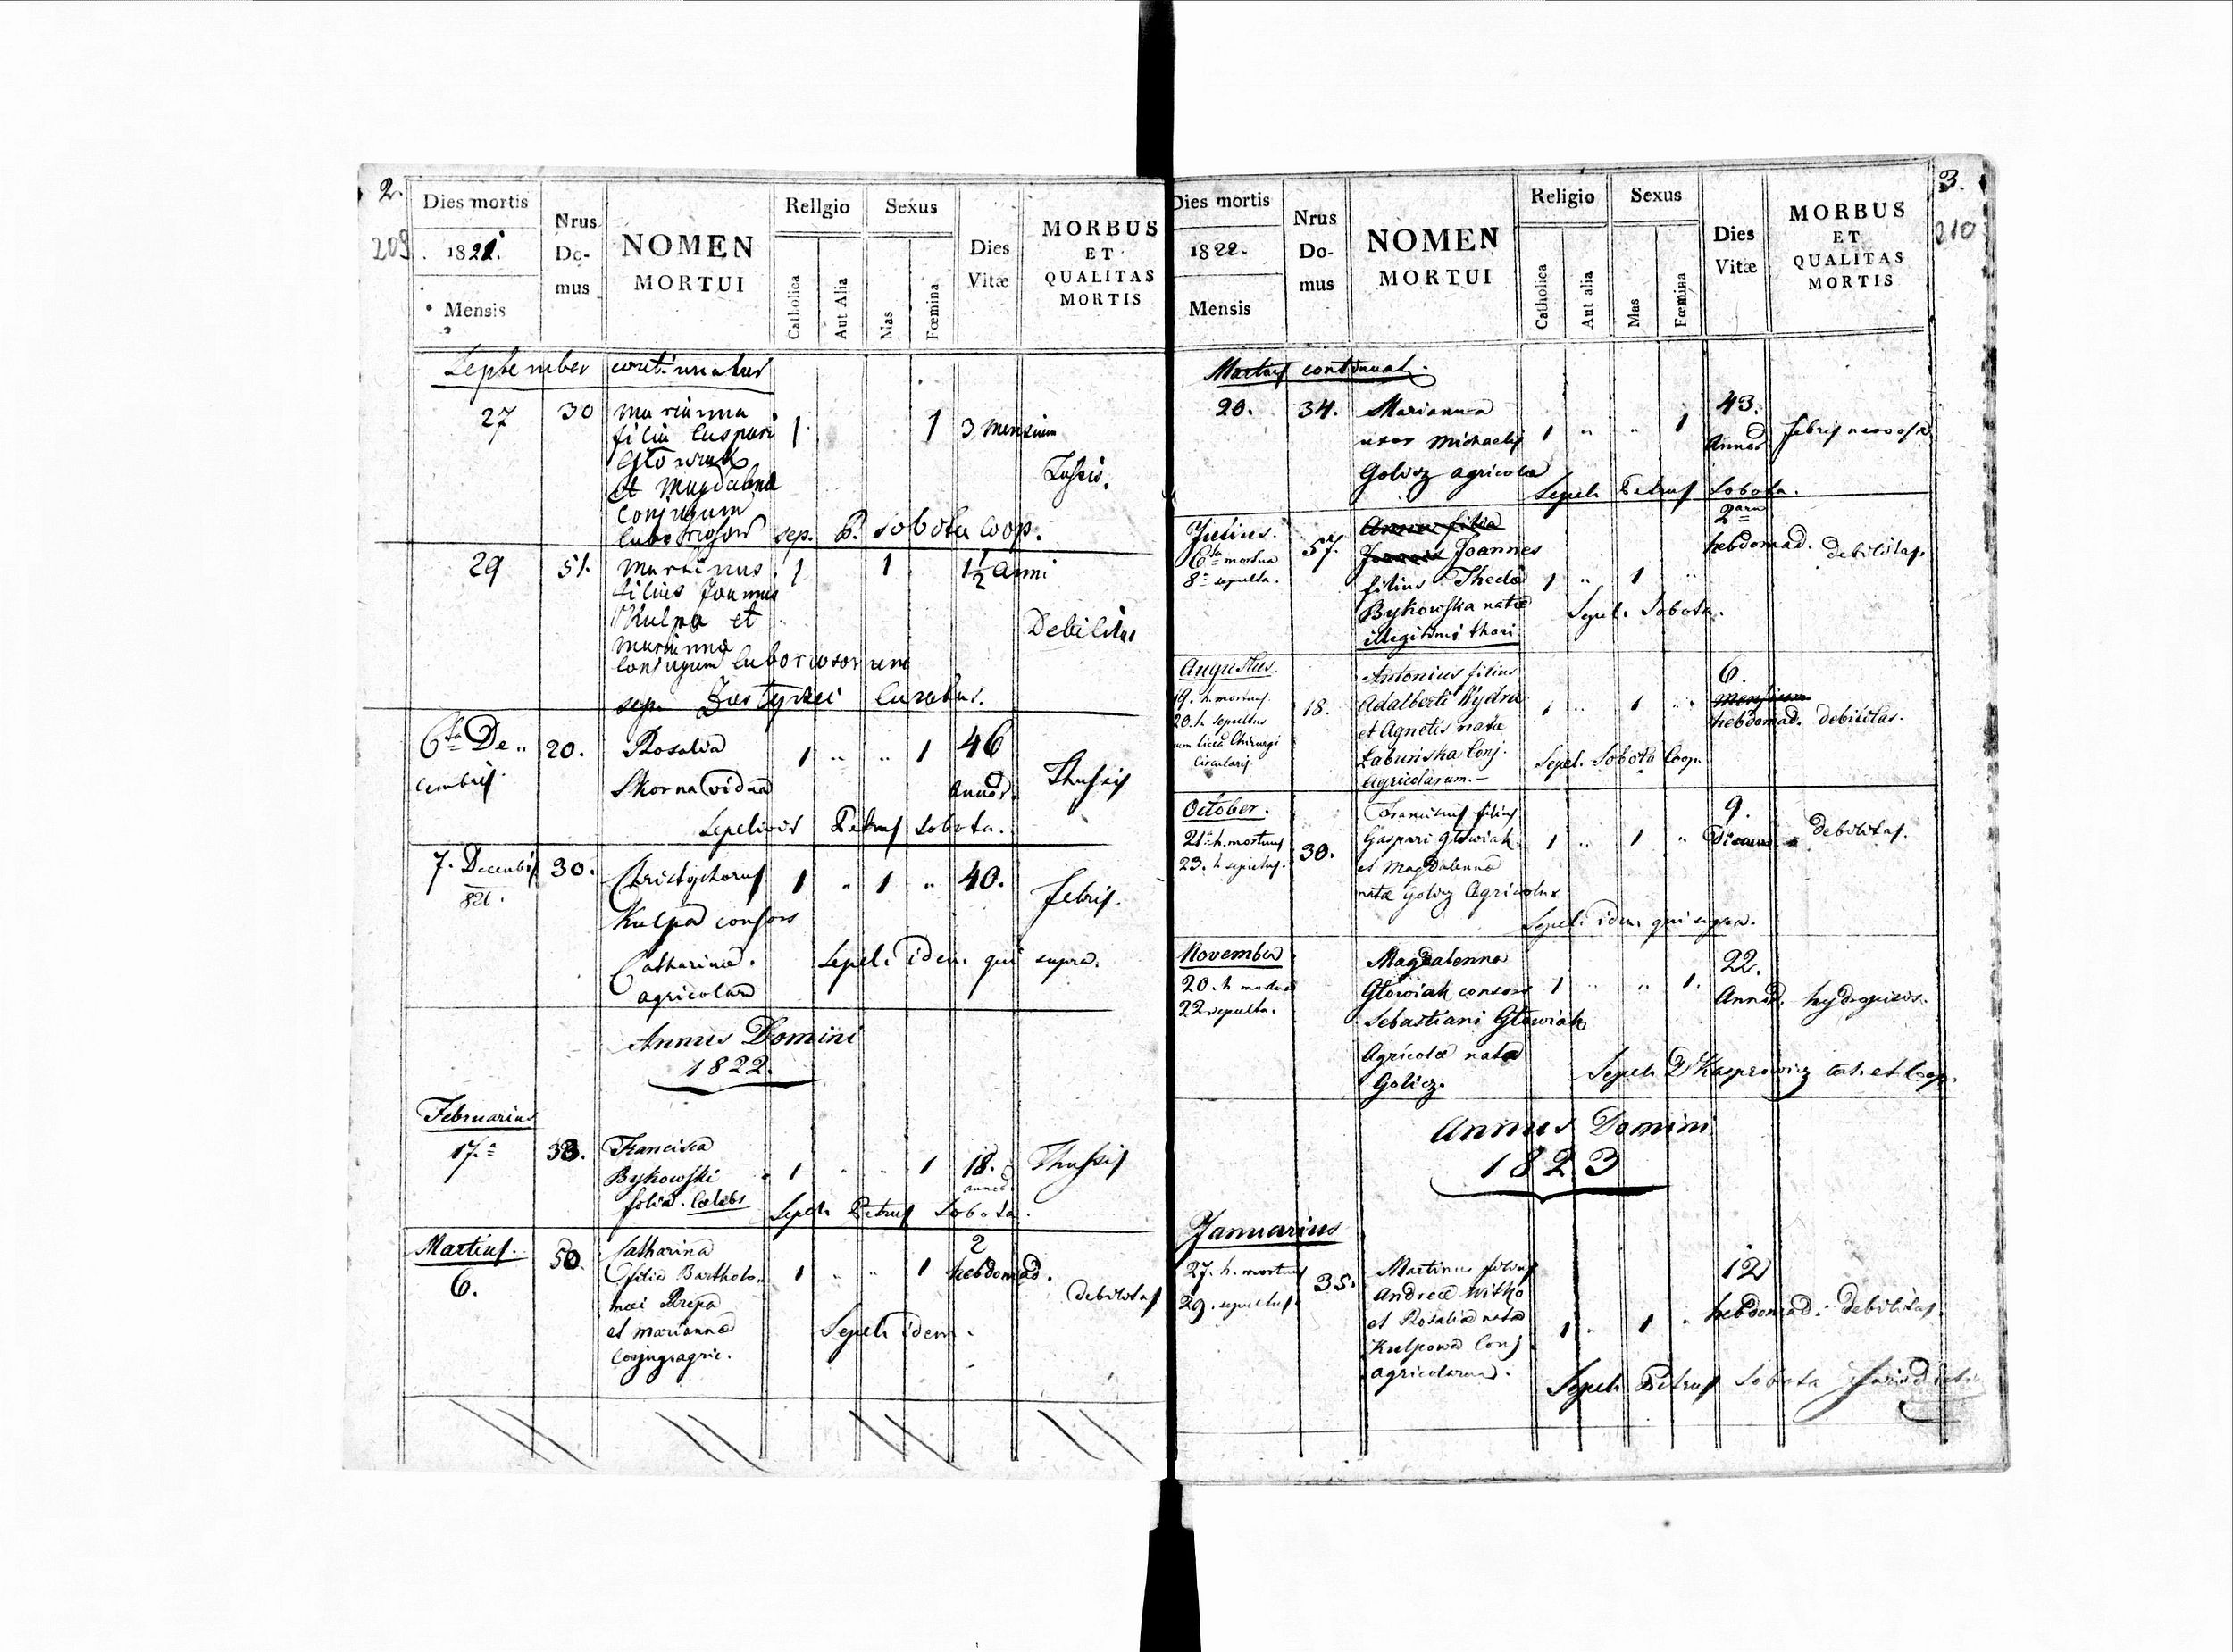 2.
209
Dies mortis
1821.
Mensis
Nrus
Do-
mus
NOMEN
MORTUI
Religio
Catholica
Aut Alia
Sexus
Mas
Fœmina
Dies
Vitæ
MORBUS
ET
QUALITAS
MORTIS
September continuatur
27 30 Marianna
filia Caspari 1 1 3 mensium
et Magdalena
Tussis.
Conjugum
sep. P. Sobota Coop.
29 51. Martinus 1 1 1½ anni
filius Joannis
Kulpa et
Marianna
Debilitas
Conjugum laboriosorum
sep. Curatus.
6ta De„ 20. Rosalia 1 „ „ 1 46
cembris. Skorna vidua Annor. Thussis
Sepelivit Petrus Sobota.
7. Decembris 30. Christophorus 1 „ 1 „ 40.
821. Febris.
Kulpa consors
Catharina. Sepel. idem qui supra.
agricolara
Annus Domini
1822.
Februarius
17. 33. Francisca
Bykowski 1 „ „ 1 18. Thussis
filia. Cœlebs annor.
Sepeli Petrus Sobota.
Martius. 50. Catharina 2
6. filia Bartholo„ 1 „ „ 1 hebdomad.
mæi Rzepa debilitas
et Marianna Sepeli idem.
Conjug. agric.
3.
210
Dies mortis
1822.
Mensis
Nrus
Do-
mus
NOMEN
MORTUI
Religio
Catholica
Aut alia
Sexus
Mas
Fœmina
Dies
Vitæ
MORBUS
ET
QUALITAS
MORTIS
Martius continuat.
20. 34. Marianna 43.
uxor Michaelis 1 „ „ 1 Annor. febris nervosa
Golicz agricolæ
Sepeli Petrus Sobota.
Julius. 57. Anna filia 2
6ta mortua Joannis Joannes hebdomad. debilitas.
8 sepulta. filius Thecla 1 „ 1 „
Bykowska natæ Sepel. Sobota.
illegitimi thori
Augustus. Antonius filius 6.
19. h. mortuus 18. Adalberti Wydra 1 „ 1 „ Mensium
20. h. sepultus et Agnetis nata hebdomad. debilitas.
Chirurgi Łabuńska Conj. Sepel. Sobota Coop.
Circularis Agricolarum.
October. Franciscus filius 9.
21. h. mortuus 30. Gaspari Głowiak 1 „ 1 „ Dierum debilitas.
23. h. sepultus. et Magdalenna
nata Golicz Agricolar
Sepeli idem qui supra.
November Magdalenna 22.
20. h. Głowiak consors 1 „ „ 1. Annor. hydropisis.
22 sepulta. Sebastiani Głowiak
Agricolæ nata
Golicz. Sepeli Kasprowicz et Coop.
Annus Domini
1823
Januarius
27. h. mortuus 35. Martinus filius 12
29. sepultus. Andreæ Witko hebdomad. debilitas.
et Rosalia nata 1 „ 1 „
Kulpowa Conj.
agricolarum.
Sepeli Petrus Sobota